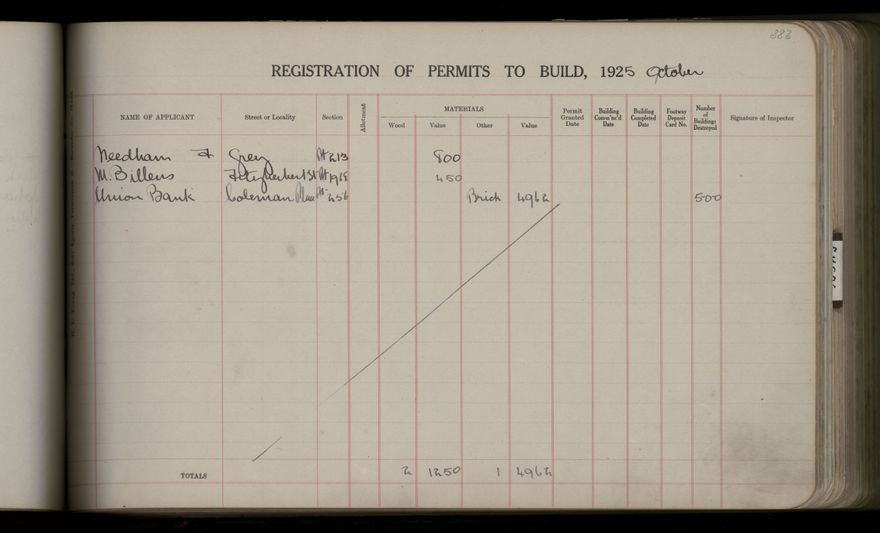 383
REGISTRATION OF PERMITS TO BUILD, 1925 October
NAME OF APPLICANT Street or Locality Section Allotment MATERIALS Permit Granted Date Building Comm'nc'd Date Building Completed Date Footway Deposit Card No. Number of Buildings Destroyed Signature of Inspector
Wood Value Other Value
Needham F Grey Pt 213 800
M. Billens Fitzherbert St Pt 1918 450
Union Bank Coleman Place Pt 456 Brick 4962 500
TOTALS 2 1250 1 4962